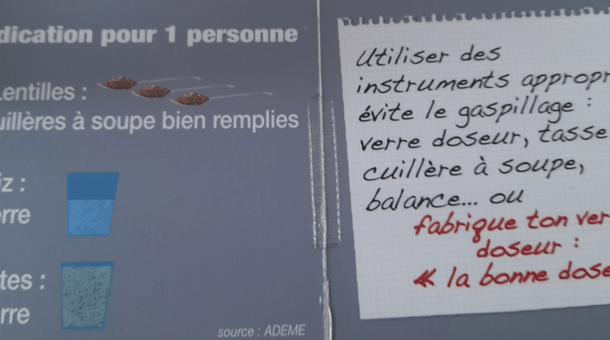 dication pour 1 personne
entilles :
uillères à soupe bien remplies
iz :
erre
tes :
rre
source : ADEME
Utiliser des
instruments appropr
évite le gaspillage :
verre doseur, tasse
cuillère à soupe,
balance... ou
fabrique ton ver
doseur :
« la bonne dose